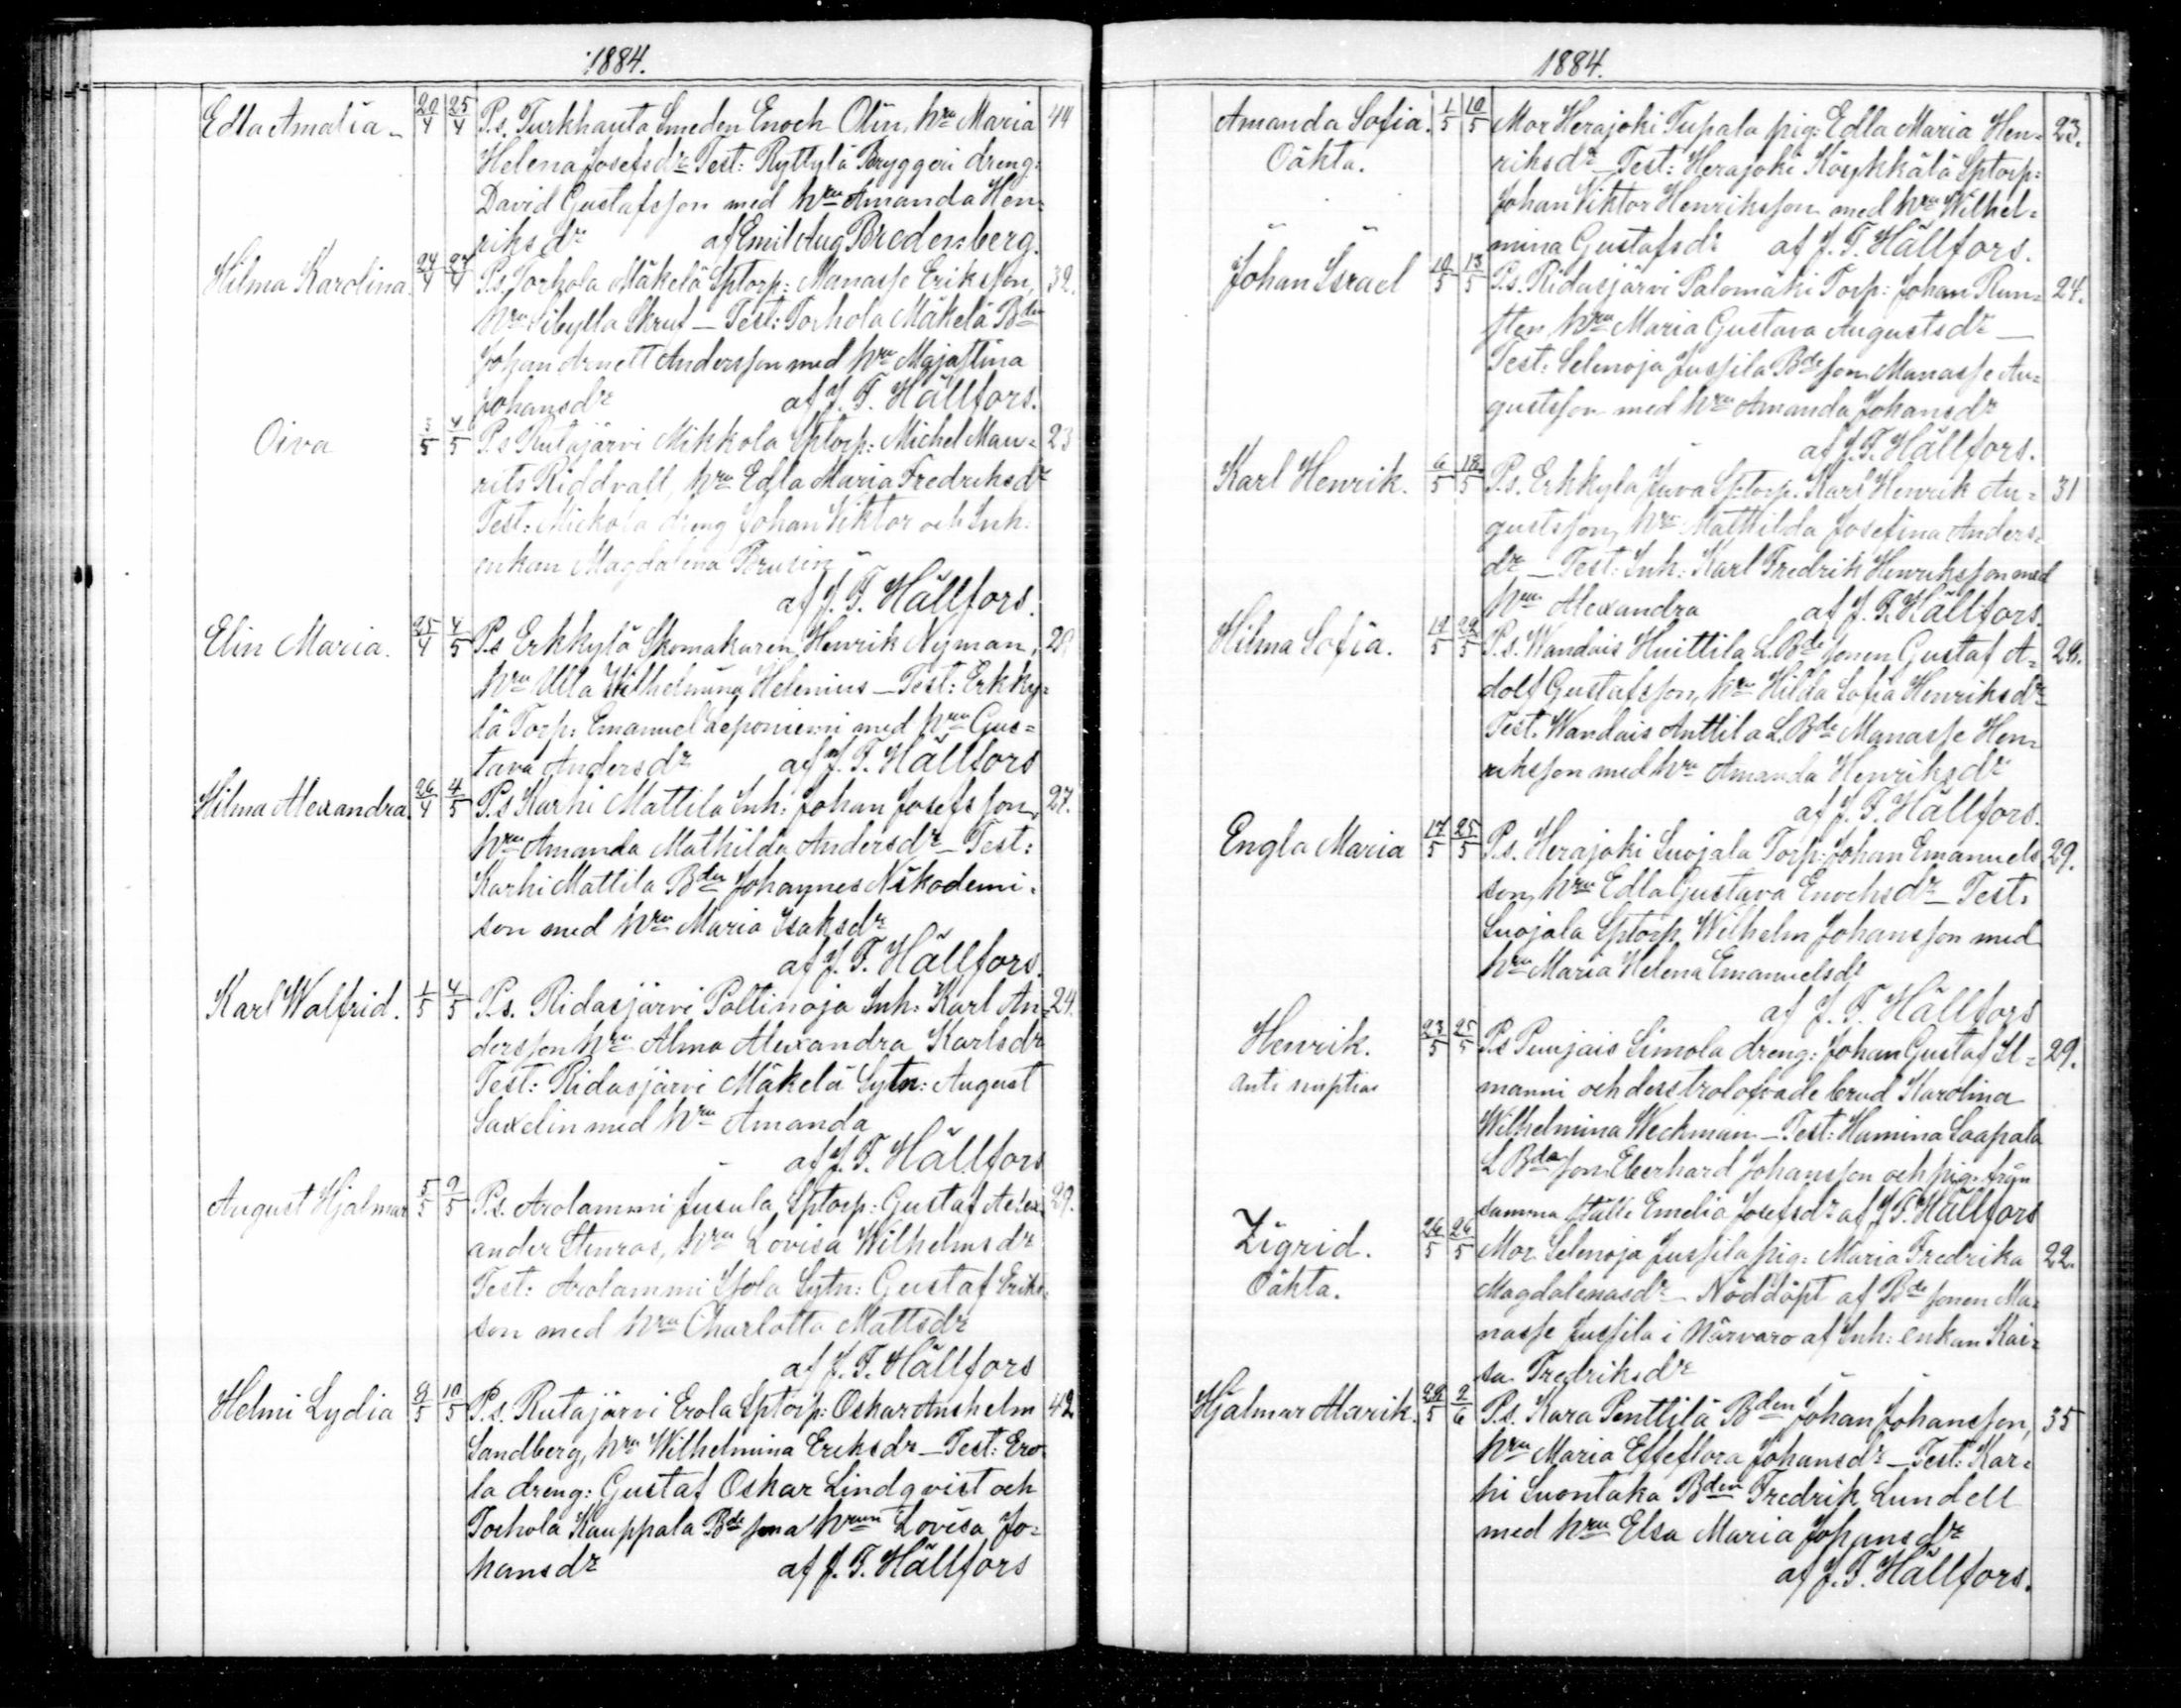 1884.
Edla Amalia 20/4 25/4 P.s. Turkhauta Smeden Enoch Olin, hru Maria 44
Helena Josefsdr Test: Ryttylä Bryggeri dreng:
David Gustafsson med hru Amanda Hen-
riksdr af Emil Aug Bredenberg.
Hilma Karolina 24/4 27/4 P.s. Torhola Mäkelä Sptorp: Manasse Eriksson, 32.
hru Sibylla Skruf – Test: Torhola Mäkelä Bden
Johan Arnett Andersson med hru Majastina
Johansdr af J. F. Hällfors.
Oiva 3/5 4/5 P.s Rutajärvi Mikkola Sptorp: Michel Mau- 23
rits Riddvall, hru Edla Maria Fredriksdr
Test: Mickola dreng Johan Viktor och Inh:
enkan Magdalena Brusin
af J. F. Hällfors.
Elin Maria. 25/4 4/5 P.s Erkkylä Skomakaren Henrik Nyman, 28
hru Ulla Wilhelmina Helenius – Test: Erkky-
lä Torp: Emanuel Leponiemi med hru Gus-
tava Andersdr af J. F. Hällfors
Hilma Alexandra 26/4 4/5 P.s Karhi Mattila Inh: Johan Josefsson, 27.
hru Amanda Mathilda Andersdr – Test:
Karhi Mattila Bden Johannes Nikodemi-
son med hru Maria Isaksdr
af J. F. Hällfors.
Karl Walfrid. 1/5 4/5 P.s. Ridasjärvi Paltinoja Inh: Karl An- 24.
dersson hru Alma Alexandra Karlsdr
Test: Ridasjärvi Mäkelä Sytn: August
Saxelin med hru Amanda
af J. F. Hällfors
August Hjalmar 5/5 9/5 P.s. Arolammi Jusula, Sptorp: Gustaf Alex- 29.
ander Stenros, hru Lovisa Wilhelmsdr
Test: Arolammi Isola Sytn: Gustaf Eriks-
son med hru Charlotta Mattsdr
af J. F. Hällfors
Helmi Lydia 9/5 10/5 P.s. Rutajärvi Erola Sptorp: Oskar Anshelm 42
Sandberg, hru Wilhelmina Eriksdr – Test: Ero-
la dreng: Gustaf Oskar Lindqvist och
Torhola Kauppala Bde sona hrun Lovisa Jo-
hansdr af J. F. Hällfors
1884.
Amanda Sofia. 1/5 10/5 Mor Herajoki Tupala pig: Edla Maria Hen- 23.
Oäkta. riksdr – Test: Herajoki Köykkälä Sptorp:
Johan Viktor Henriksson med hru Wilhel-
mina Gustafsdr af J. F. Hällfors.
Johan Israel 10/5 13/5 P.s. Ridasjärvi Palomäki Torp: Johan Run- 24.
sten hru Maria Gustava Augustsdr –
Test: Selenoja Jussila Bde son Manasse Au-
gustsson med hru Amanda Johansdr
af J. F. Hällfors.
Karl Henrik. 6/5 18/5 P.s. Erkkylä Juva Sptorp. Karl Henrik Au- 31
gustsson, hru Mathilda Josefina Anders-
dr – Test: Inh: Karl Fredrik Henriksson med
hru Alexandra af J. F. Hällfors.
Hilma Sofia. 19/5 22/5 P.s. Wandais Huittila L.Bde sonen Gustaf A- 24.
dolf Gustafsson, hru Hilda Sofia Henriksdr
Test. Wandais Anttila L.Bde Manasse Hen-
riksson med hru Amanda Henriksdr
af J. F. Hällfors.
Engla Maria 17/5 25/5 P.s. Herajoki Suojala Torp: Johan Emanuels- 29.
son, hru Edla Gustava Enochsdr – Test.
Suojala Sptorp Wilhelm Johansson med
hru Maria Helena Emanuelsdr
af J. F. Hällfors
Henrik. 23/5 25/5 P.s Puujais Simola dreng: Johan Gustaf Il- 29.
anti nuptias manni och dess trolofvade brud Karolina
Wilhelmina Weckman – Test: Humina Saapala
L Bde son Eberhard Johansson och pig: från
samma ställe Emelia Josefsdr af J F. Hällfors
Zigrid. 26/5 26/5 Mor Selenoja Jussila pig: Maria Fredrika 22.
Oäkta. Magdalenasdr – Nöddöpt af Bde sonen Ma-
nasse Jussila i närvaro af Inh: enkan Kai-
sa Fredriksdr
Hjalmar Alarik. 29/5 2/6 P.s. Kara Penttilä Bden Johan Johansson, 35
hru Maria Effeflora Johansdr – Test: Kar-
hi Suontaka Bden Fredrik Lundell
med hru Elsa Maria Johansdr
af J. F. Hällfors.